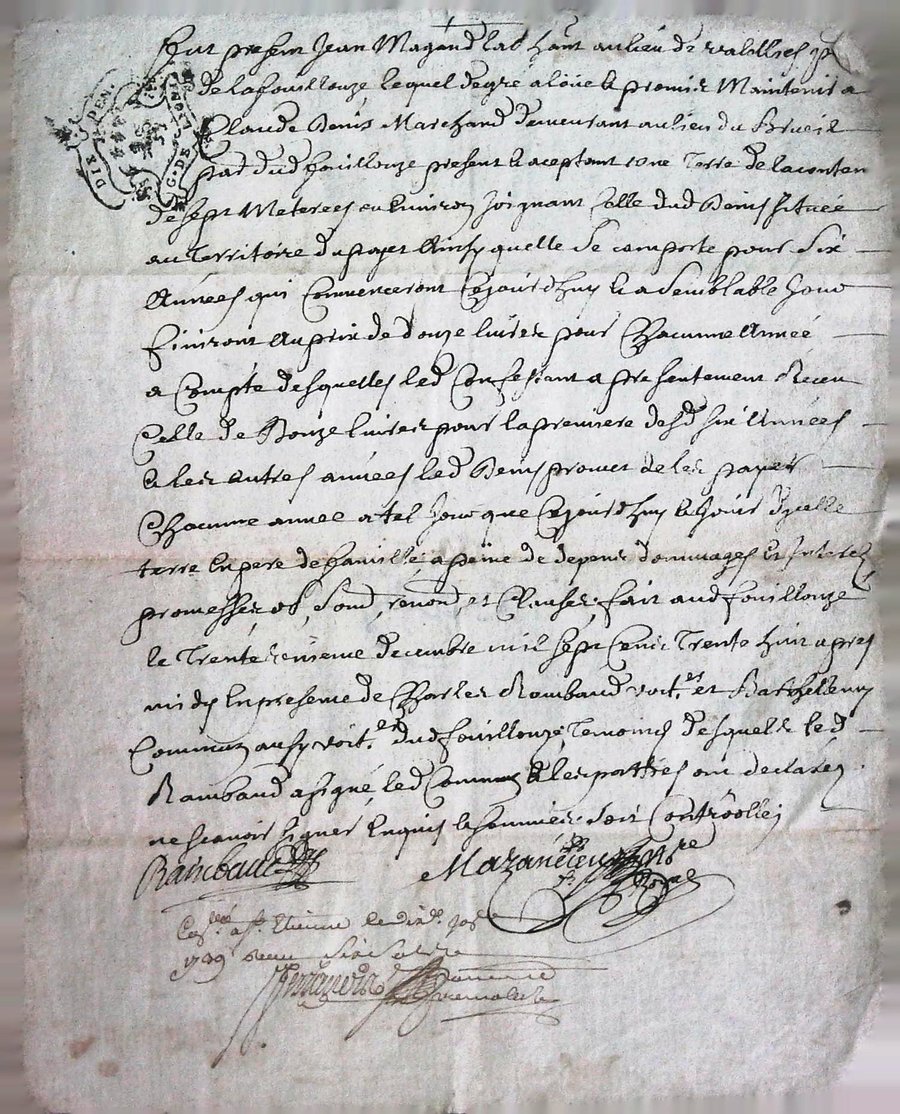 fut present Jean Magand lab. hant. au lieu de
de lafouillouze lequel degré a loüé & promis Maintenir a
Claude Denis Marchand demeurant au lieu du Brueil
dud fouillouze present & aceptant une Terre de la conten
de sept Meterees en Environ Joignant Celle dud Denis située
au territoire du Ainsy quelle se comporte pour six
Années qui Commenceront Cejourdhuy & a semblable Jour
finiront au prix de douze livres pour Chacune Année
a Compte desquelles led Confessant a presentement Receu
Celle de Douze livres pour la premiere desd six Années
& les autres années led Denis promet de les payer
Chacune année a tel Jour que Cejourdhuy & Jouir dycelle
terre En pere de famille a peine de depens dommages Et Interez
promesses, ob, soud, renond, et Clauses, fait aud fouillouze
le Trente decembre mil sept Cens Trente huit apres
midy En presence de Charles Rambaud voit.er et Barthellemy
Commun aussy voit.er dud fouillouze Temoins desquels led
Rambaud a signé, led Commun & les parties ont declaré
ne scavoir signer Enquis & sommés. soit Controollé
Rambaud
Mazancieu No.re Royal
DIX DEN.
G. DE LYON
a St. Etienne le
1739 Receu six sols